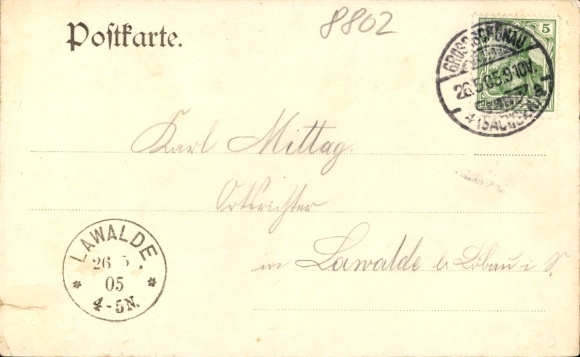 8802
Postkarte.
GROSSSCHÖNAU
26.5.05.9-10V.
(SACHSEN)
5
Karl Mittag.
Ortsrichter
in Lawalde b. Löbau i. S.
LAWALDE
26 5.
05
4-5N.